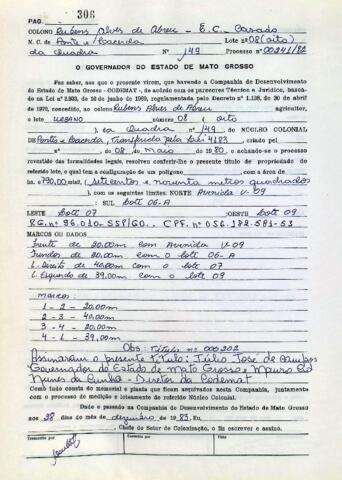 PAG. 306
COLONO Rubens Alves de Abreu - E.C. Casado
N. C. de Ponte e Lacerda Lote nº 08 (oito)
da Quadra Nº 149 Processo nº 00241/82
O GOVERNADOR DO ESTADO DE MATO GROSSO
Faz saber, aos que o presente virem, que havendo a Companhia de Desenvolvimento
do Estado de Mato Grosso - CODEMAT -, de acordo com os pareceres Técnico e Jurídico,
de 1970, concedido, ao colono Rubens Alves de Abreu agricultor,
o lote URBANO número 08 (oito
) da Quadra nº 149, do NÚCLEO COLONIAL
DE Ponte e Lacerda, Transferida pela Lei 4183, criado pel
nº de 08 de Maio de 1980, e achando-se o processo
revestido das formalidades legais, resolveu conferir-lhe o presente título de propriedade do
referido lote, o qual tem a configuração de um polígono com a área de
ha. 790,00 mts2, (setecentos e noventa metros quadrados
), com os seguintes limites: NORTE Avenida V-09
SUL Lote 06-A
LESTE Lote 07 OESTE Lote 09
MARCOS OU DADOS
Frente de 20,00m com Avenida V-09
Fundos de 20,00m com o lote 06-A
L. Direito de 40,00m com o lote 07
L. Esquerdo de 39,00m com o lote 09
MARCOS:
1 - 2 - 20,00m
2 - 3 - 40,00m
3 - 4 - 20,00m
4 - 1 - 39,00m
Obs: Título nº 000202
Assinaram o presente título: Júlio José de Campos
Governador do Estado de Mato Grosso e Mauro Cid
Nunes da Cunha - Diretor da Codemat
Como tudo consta do memorial e planta que ficam arquivados nesta Companhia, juntamente
com o processo de medição e loteamento do referido Núcleo Colonial.
Dado e passado na Companhia de Desenvolvimento do Estado de Mato Grosso
aos 28 dias do mês de dezembro de 1983. Eu,
, Chefe do Setor de Colonização, o fiz escrever e assino.